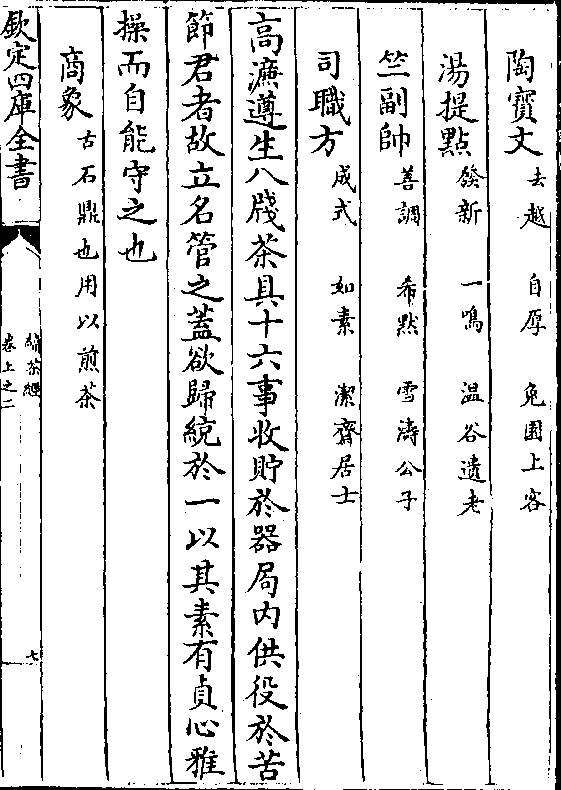 陶寶文 去越 自厚 兔園上客
湯提點 發新 一鳴 温谷遺老
竺副帥 善調 希點 雪濤公子
司職方 成式 如素 潔齋居士
高濂遵生八牋茶具十六事收貯於器局内供役於苦
節君者故立名管之蓋欲歸統於一以其素有貞心雅
操而自能守之也
商象 古石鼎也用以煎茶
欽定四庫全書
續茶經
卷上之二
七